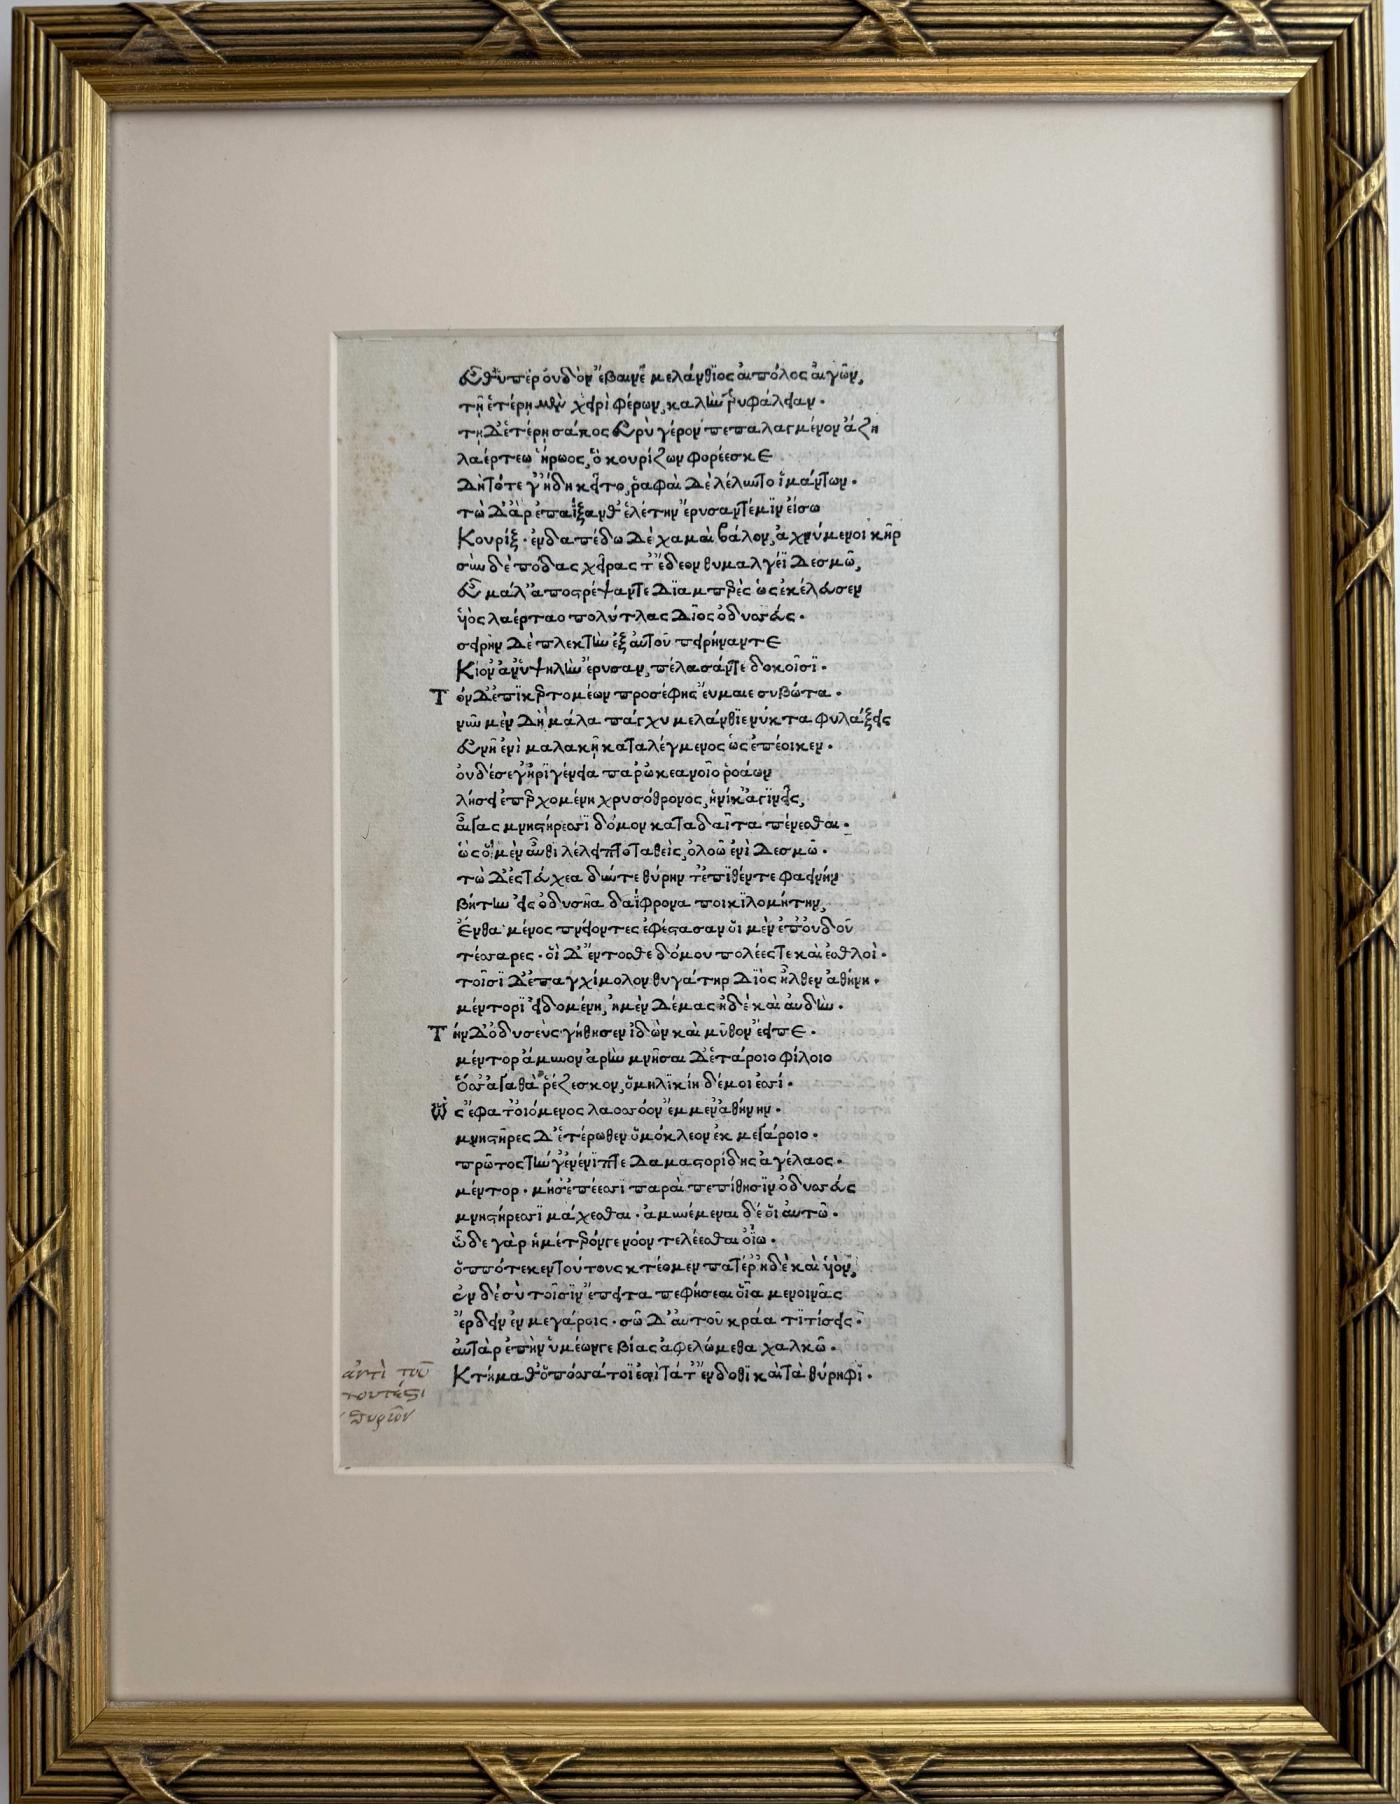 εὖθ' ὑπὲρ ὀυδὸν ἔβαινε μελάνθιος ἀιπόλος ἀιγῶν,
τῇ ἑτέρῃ μὲν χειρὶ φέρων, καλὴν τρυφάλειαν.
τῇ δ' ἑτέρῃ σάκος εὐρὺ γέρον πεπαλαγμένον ἄζῃ
λαέρτεω ἥρωος, ὃ κουρίζων φορέεσκε
δὴ τότε γ' ἤδη κεῖτο, ῥαφαὶ δὲ λέλυντο ἱμάντων.
τὼ δ' ἂρ ἐπαΐξανθ' ἑλέτην ἔρυσαν τέ μιν εἴσω
Κουρίξ. ἐνδαπέδω δὲ χαμαὶ βάλον, ἀχνύμενοι κῆρ
σὺν δὲ πόδας χεῖρας τ' ἔδεον θυμαλγέϊ δεσμῶ,
εὖ μάλ' ἀποστρέψαντε διαμπερὲς ὡς ἐκέλευσεν
ὑὸς λαέρταο πολύτλας δῖος ὀδυσσεύς.
σειρὴν δὲ πλεκτὴν ἐξ ἀυτοῦ πειρήναντε
Κίον' ἀν' ὑψηλὴν ἔρυσαν, πέλασάν τε δοκοῖσι.
Τὸν δ' ἐπικερτομέων προσέφης ἔυμαιε συβώτα.
νῦν μὲν δὴ μάλα πάγχυ μελάνθιε νύκτα φυλάξεις
εὐνῇ ἐνὶ μαλακῇ καταλέγμενος ὡς ἐπέοικεν.
ὀυδέ σε γ' ἠριγένεια παρ' ὠκεανοῖο ῥοάων
λήσει ἐπερχομένη χρυσόθρονος, ἡνίκ' ἀγινεῖς,
αἶγας μνηστήρεσσι δόμον κατα δαῖτα πένεσθαι.
ὡς ὁ μὲν αὖθι λέλειπτο ταθεὶς, ὀλοῶ ἐνὶ δεσμῶ.
τὼ δ' ἐς τεύχεα δύντε θύρην τ' ἐπιθέντε φαεινὴν
βήτην εἰς ὀδυσῆα δαΐφρονα ποικιλομήτην,
Ἔνθα μένος πνείοντες ἐφέστασαν οἱ μὲν ἐπ' ὀυδοῦ
τέσσαρες. ὁι δ' ἔντοσθε δόμου πολέες τε καὶ ἐσθλοὶ.
τοῖσι δ' ἐπ' αγχίμολον θυγάτηρ διὸς ἦλθεν ἀθήνη.
μέντορι εἰδομένη, ἠμὲν δέμας ἠδὲ καὶ ἀυδὴν.
Τὴν δ' ὀδυσεὺς γήθησεν ἰδὼν καὶ μῦθον ἔειπε.
μέντορ ἄμυνον ἀρὴν μνῆσαι δ' ἑτάροιο φίλοιο
ὅς σ' ἀγαθὰ ῥέζεσκον, ὁμηλικίη δέ μοι ἐσσί.
Ὣς ἔφατ' ὀιόμενος λαοσσόον ἔμμεν ἀθήνην.
μνηστῆρες δ' ἑτέρωθεν ὁμόκλεον ἐκ μεγάροιο.
πρῶτος τήν γ' ἐνένιπτε δαμαστορίδης ἀγέλαος.
μέντορ. μή σ' ἐπέεσσι παραὶ πεπίθησιν ὀδυσσεὺς
μνηστήρεσσι μάχεσθαι. ἀμυνέμεναι δέ ὁι ἀυτῶ.
ὧδε γὰρ ἡμέτερόν γε νόον τελέεσθαι ὀίω.
ὁππότε κεν τούτους κτέομεν πατέρ' ἠδὲ καὶ ὑὸν,
ἐν δὲ σὺ τοῖσιν ἔπειτα πεφήσεαι οἷα μενοινᾶς
ἔρδειν ἐν μεγάροις. σῶ δ' ἀυτοῦ κράα τι τίσεις.
ἀυτὰρ ἐπὴν ὑμέων γε βίας ἀφελώμεθα χαλκῶ.
ἀντὶ τοῦ
Κτήμαθ' ὁπόσσα τοί ἐστι τά τ' ἔνδοθι καὶ τὰ θύρηφι.
τουτέστι